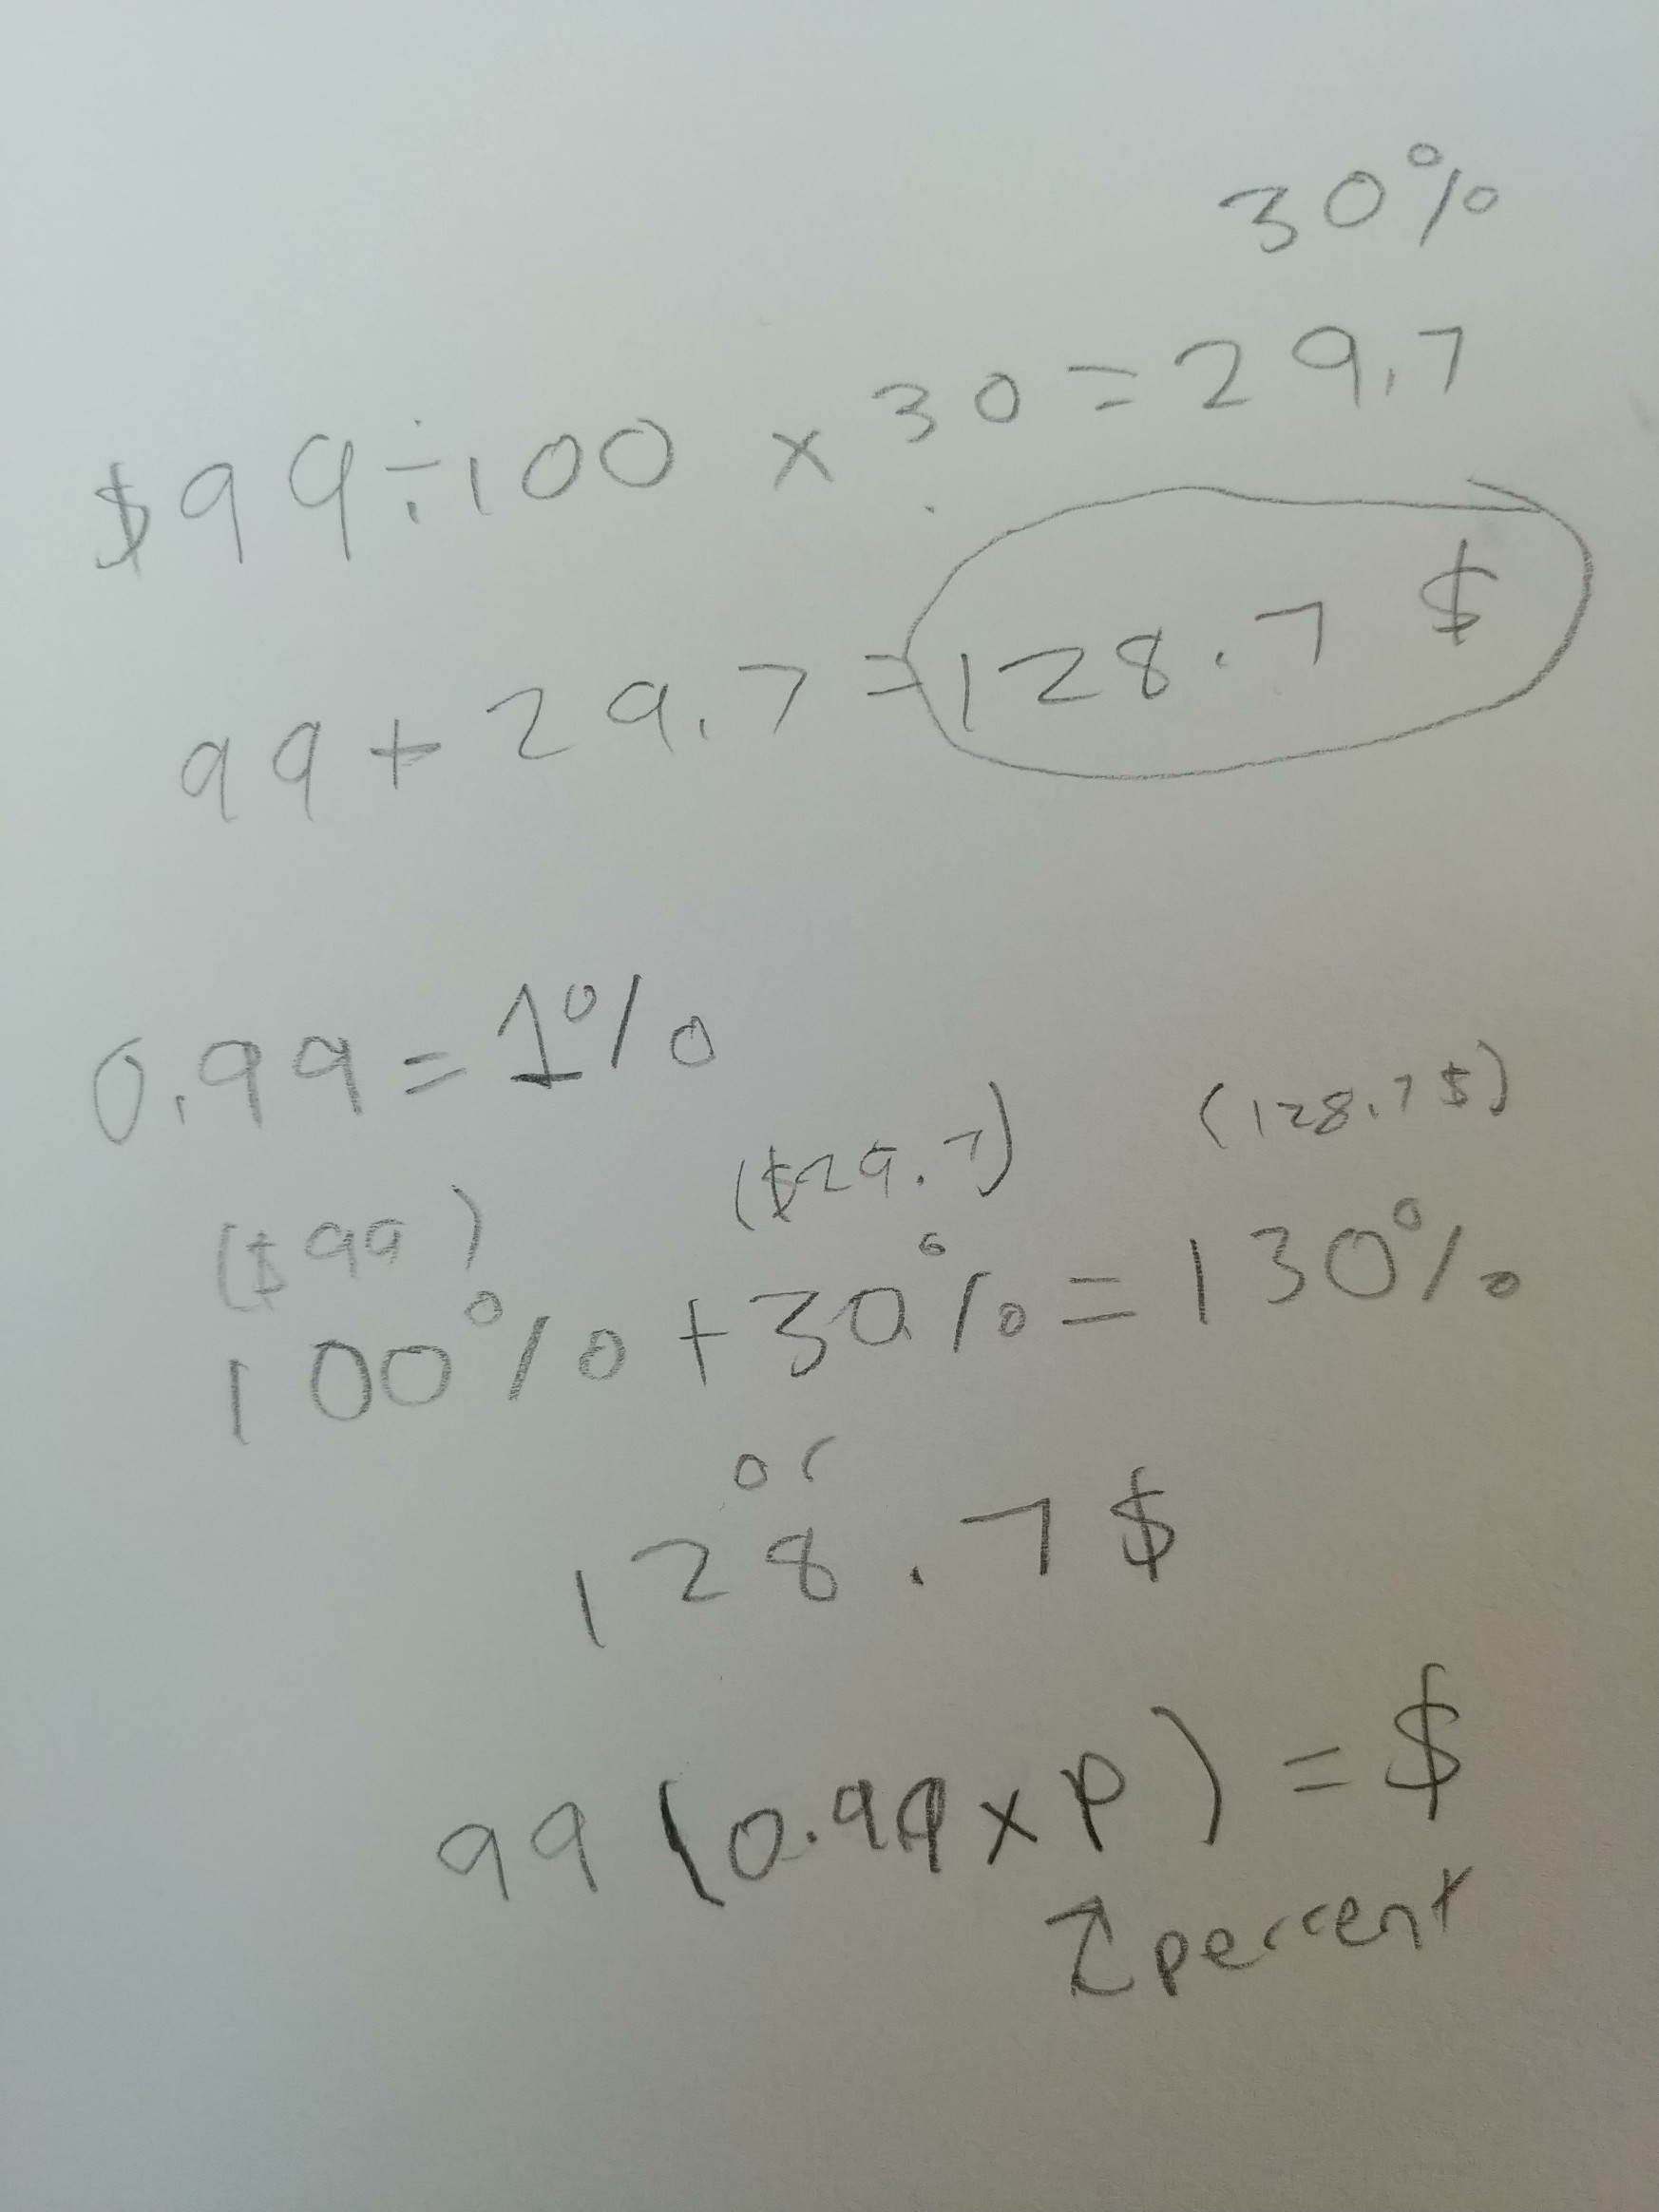 30%
$99÷100 x 30=29.7
99+29.7=128.7 $
0.99=1%
($99) ($29.7) (128.7$)
100%+30%=130%
or
128.7$
99(0.99xP)=$
↑percent